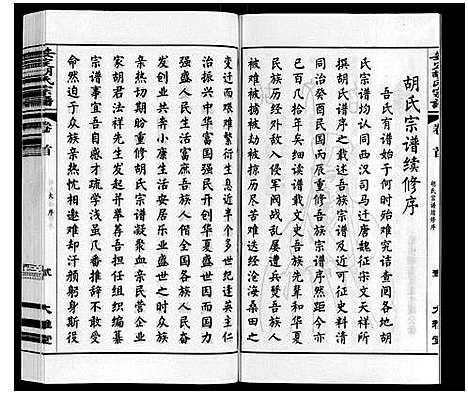 胡氏宗谱续修序
吾氏有谱始于何时殆难究诘查阅各地胡
氏宗谱均认同西汉司马迁唐魏征宋文天祥所
撰胡氏谱序之载述吾族宗谱及近可考清
同治癸酉民国丙辰重修吾族宗谱序然距今亦
已百几十年矣细读我族文史吾民族和华夏
民族历经外敌入侵军阀战乱屡遭兵燹吾族人
被难被掳被掠历尽苦难迭经沧海桑田之
变迁而艰难繁衍生息近半个多世纪逢英主仁
治振兴中华富国强民再创华夏盛世因而国力
强盛人民生活富庶吾族人偕全国各族人民奋
发图强共创伟业安居乐业盛世之时众族
亲热切期盼重修胡氏宗谱凝聚血亲民营企业
家胡君法祥先生发起并举荐吾担任组织编纂
宗谱事宜吾自感才疏学浅虽几番推辞不敢受
命然迫于众族亲热忱相邀难却汗颜躬亲斯役
卷首
大序
贰
大雅堂
卷首
胡氏宗谱续修序
大雅堂